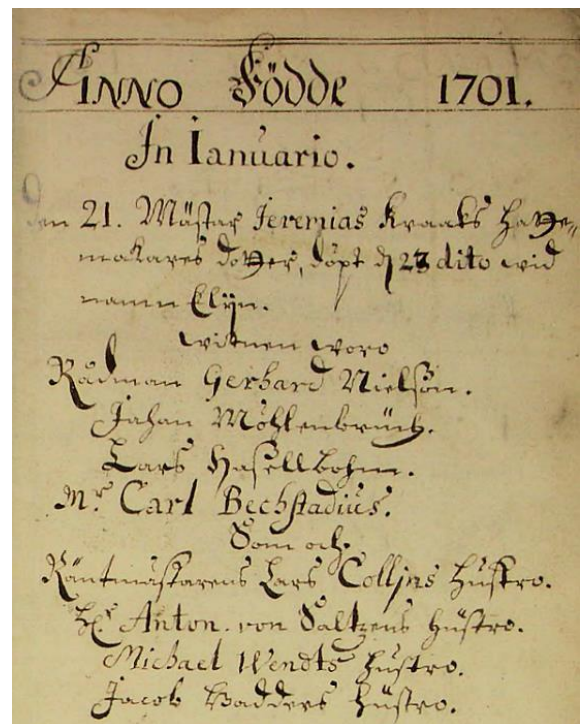 ANNO Födde 1701.
In Ianuario.
den 21. Mästar Jeremias Kraaks hatte=
makares dotter, döpt d 23 dito wid
namn Elijn.
witnen woro
Rådman Gerhard Nielson.
Johan Möhlenbrück.
Lars Hasellbohm.
Mr Carl Bechstadius.
Som och.
Räntmästarens Lars Collins hustro.
Hr Anton. von Saltzens hüstro.
Michael Wendts hustro.
Jacob Badders hüstro.